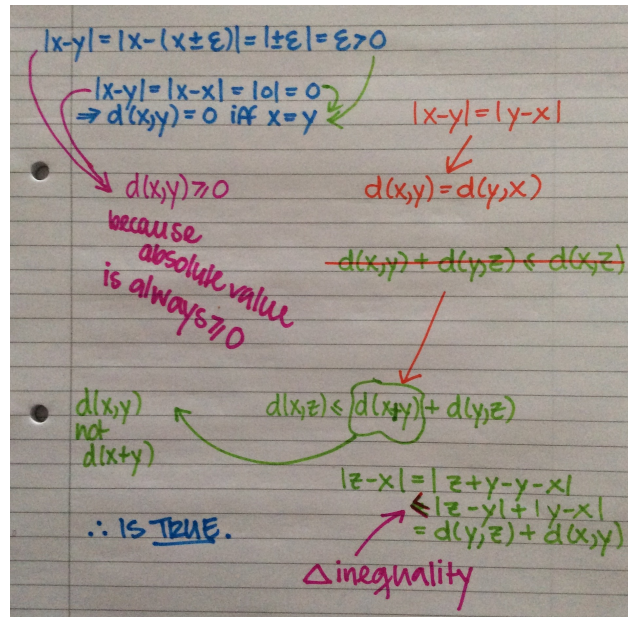 |x-y|=|x-(x±ε)|=|±ε|=ε>0
|x-y|=|x-x|=|0|=0
⇒ d(x,y)=0 iff x=y
|x-y|=|y-x|
d(x,y)=d(y,x)
d(x,y)≥0
because
absolute value
is always≥0
d(x,y)+d(y,z)≤d(x,z)
d(x,z)≤d(x+y)+d(y,z)
d(x,y)
not
d(x+y)
|z-x|=|z+y-y-x|
≤|z-y|+|y-x|
=d(y,z)+d(x,y)
∴ IS TRUE.
△inequality